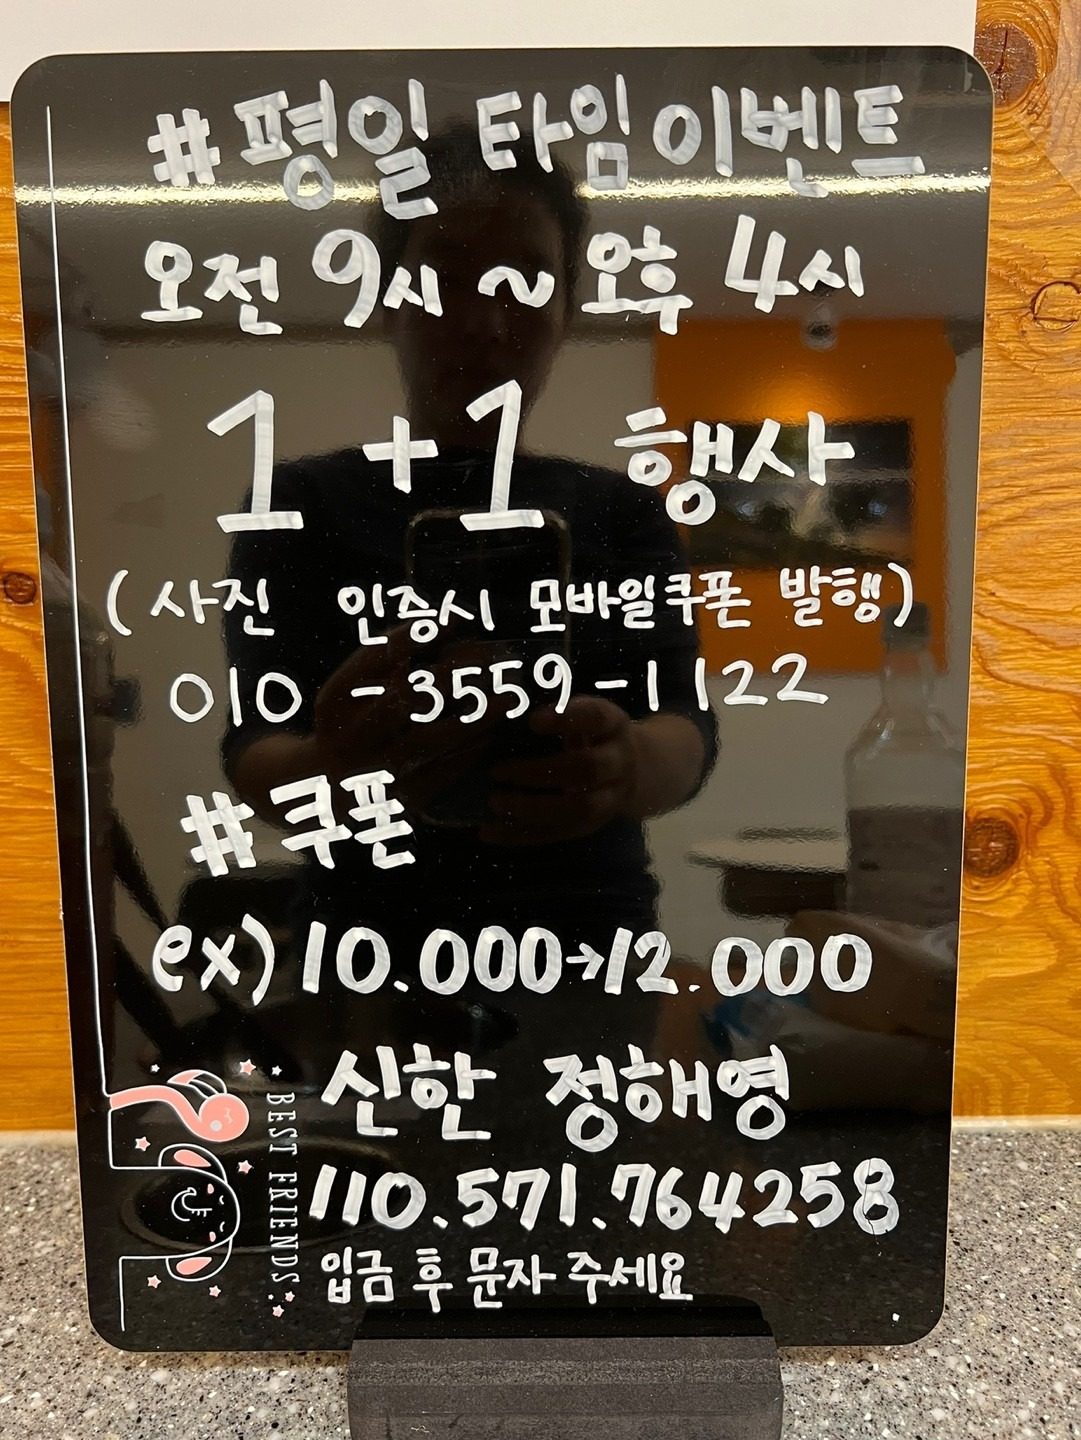 #평일 타임이벤트
오전 9시 ~ 오후 4시
1+1 행사
(사진 인증시 모바일쿠폰 발행)
010-3559-1122
#쿠폰
ex) 10.000→12.000
신한 정해영
110.571.764258
입금 후 문자 주세요
BEST FRIENDS.